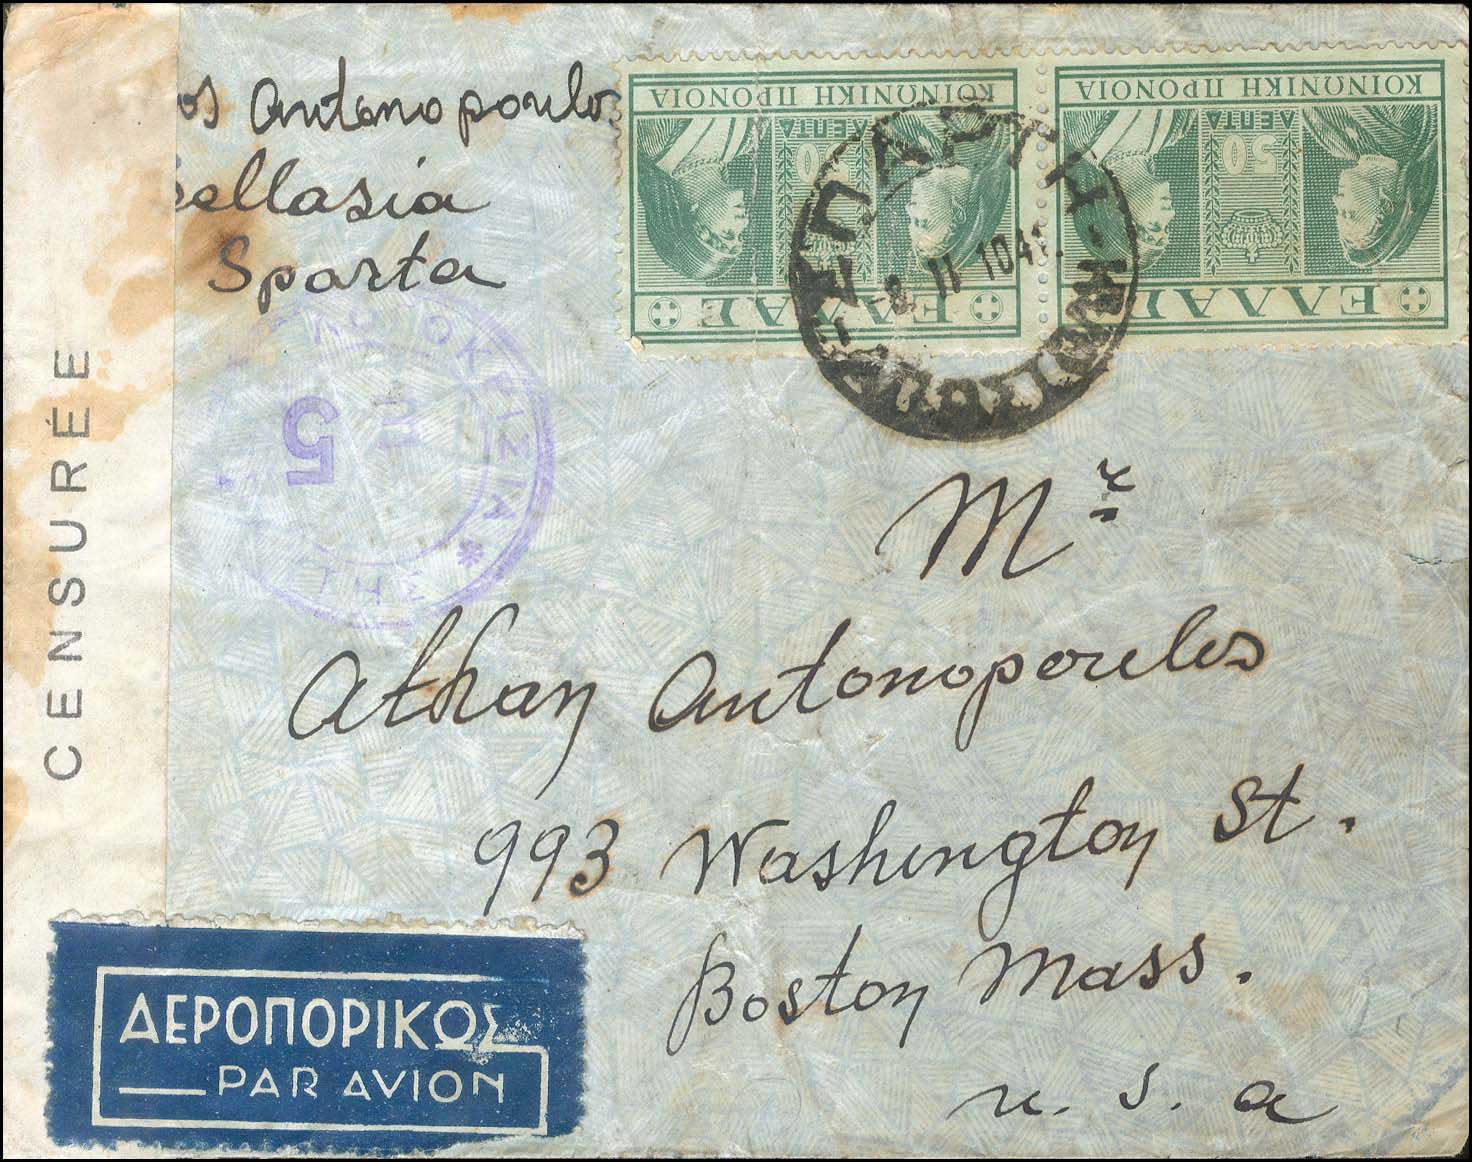 os Antonopoulos
sellasia
Sparta
ΚΟΙΝΩΝΙΚΗ ΠΡΟΝΟΙΑ
50
ΛΕΠΤΑ
ΕΛΛΑΣ
ΚΟΙΝΩΝΙΚΗ ΠΡΟΝΟΙΑ
50
ΛΕΠΤΑ
ΕΛΛΑΣ
ΣΠΑΡΤΗ
ΛΟΓΟΚΡΙΣΙΑ
5
CENSURÉE
Mr
Athan Antonopoulos
993 Washington St.
Boston Mass.
u. s. a
ΑΕΡΟΠΟΡΙΚΩΣ
PAR AVION